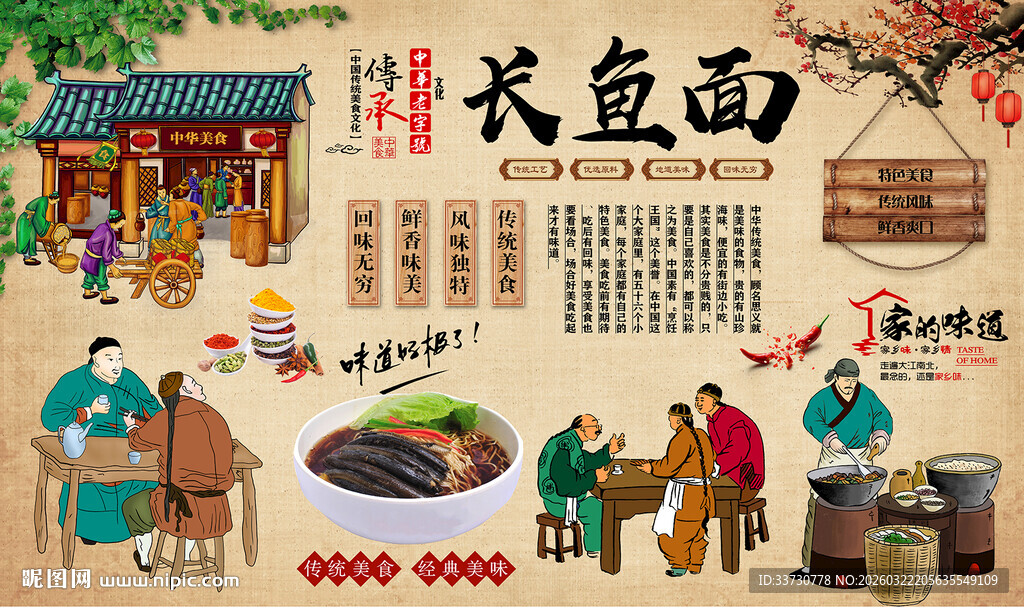 长鱼面
中华老字號
文化
傳承
【中国传统美食文化】
中华美食
传统工艺
优选原料
地道美味
回味无穷
中华美食
特色美食
传统风味
鲜香爽口
传统美食
风味独特
鲜香味美
回味无穷
中华传统美食，顾名思义就
是美味的食物，贵的有山珍
海味，便宜的有街边小吃。
其实美食是不分贵贱的，只
要是自己喜欢的，都可以称
之为美食。中国素有“烹饪
王国”这个美誉。在中国这
个大家庭里，有五十六个小
家庭，每个家庭都有自己的
特色美食。美食吃前有期待
、吃后有回味，享受美食也
要看场合，场合好美食吃起
来才有味道。
味道好极了！
家的味道
家乡味·家乡情
TASTE
OF HOME
走遍大江南北，
最念的，还是家乡味...
传统美食
经典美味
昵图网 www.nipic.com
ID:33730778 NO:20260322205635549109